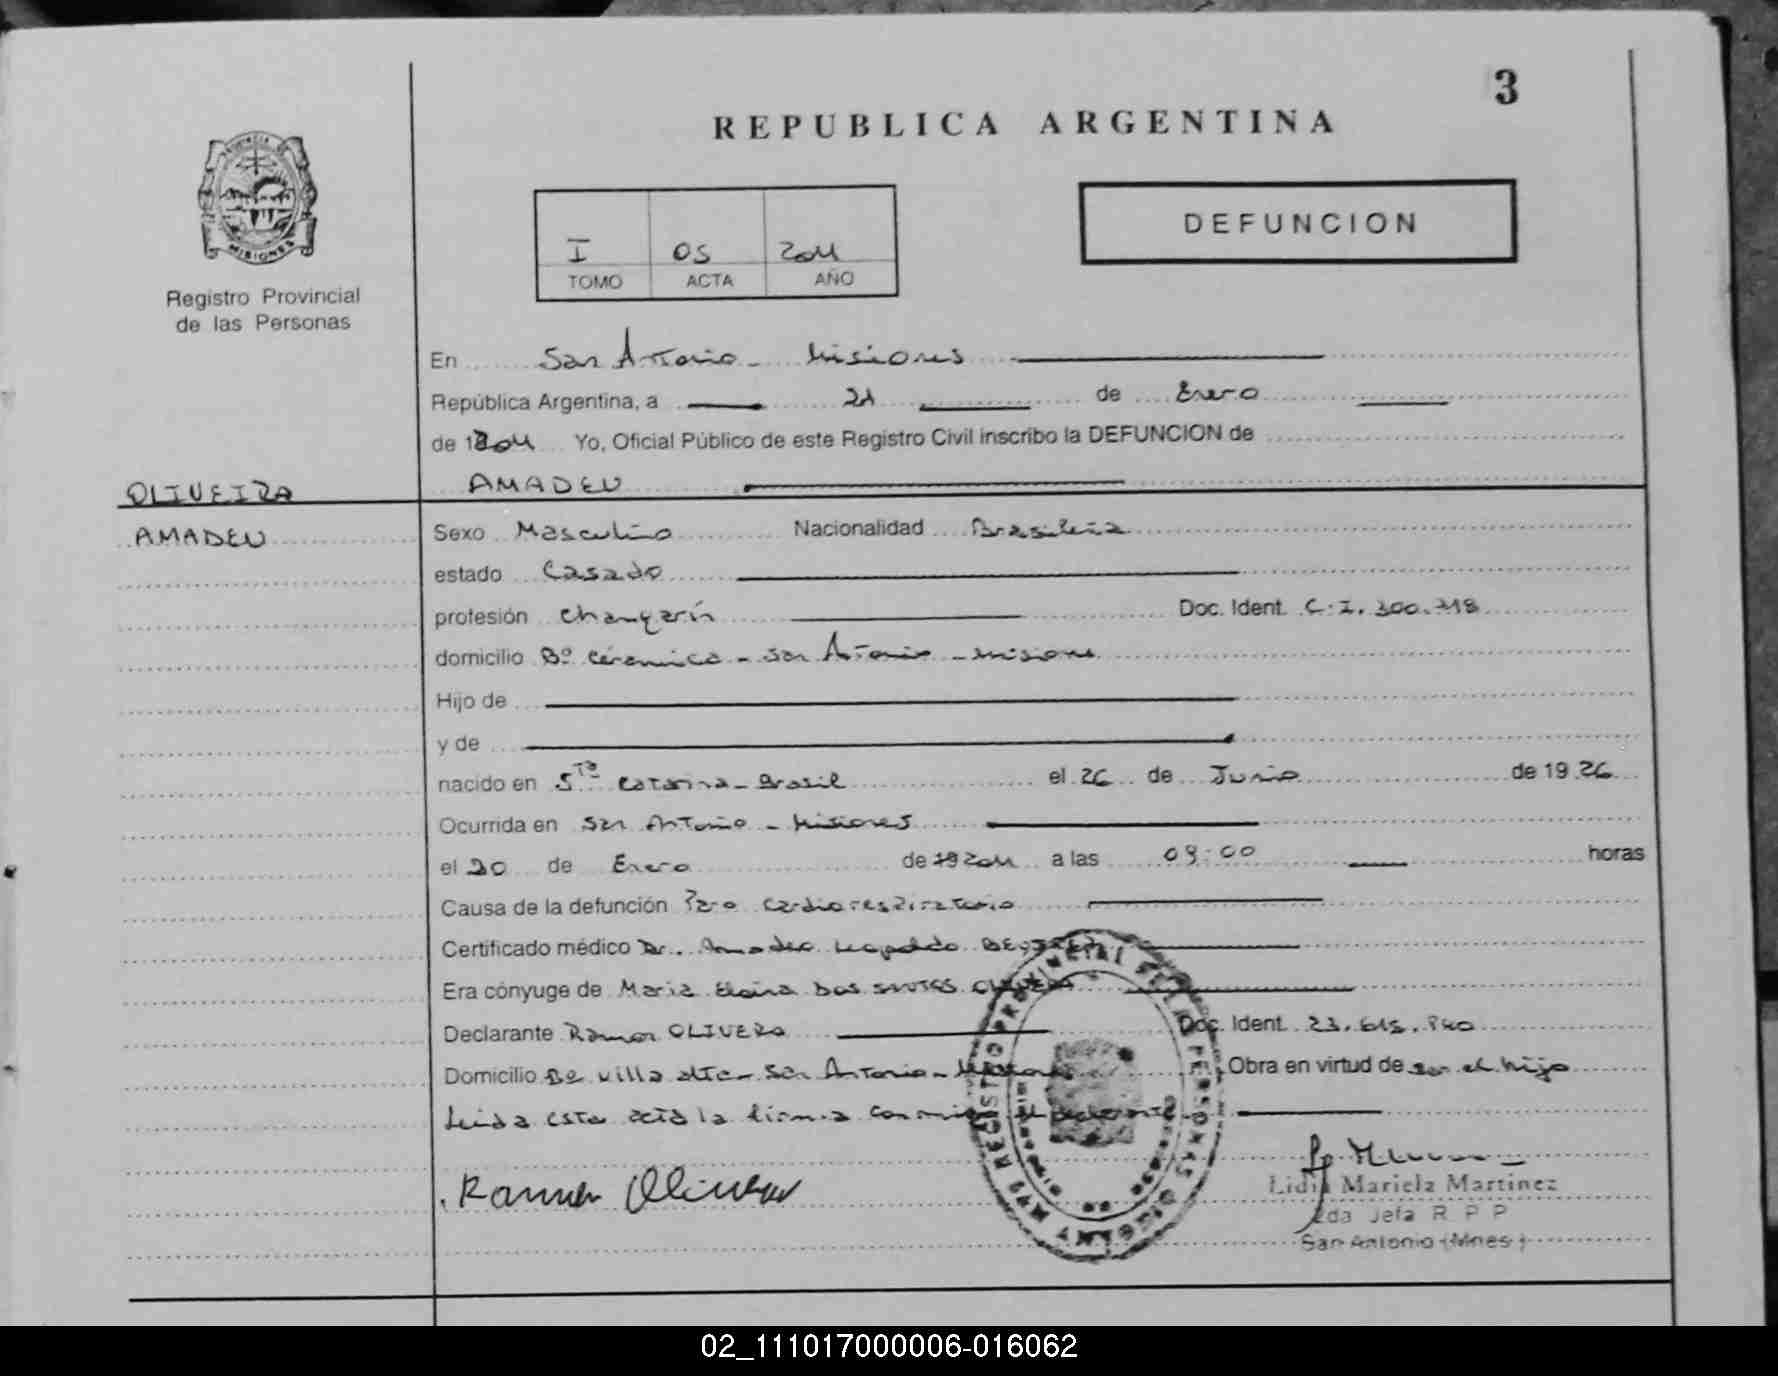 3
REPUBLICA ARGENTINA
DEFUNCION
I 05 2011
TOMO ACTA AÑO
PROVINCIA DE
MISIONES
Registro Provincial
de las Personas
En San Antonio - Misiones
República Argentina, a 21 de Enero
de 2011 Yo, Oficial Público de este Registro Civil inscribo la DEFUNCION de
OLIVEIRA AMADEU
AMADEU
Sexo Masculino Nacionalidad Brasileña
estado Casado
profesión Changarín Doc. Ident. C.I. 300.718
domicilio Bº Cerámica - San Antonio - Misiones
Hijo de
y de
nacido en Sta Catarina - Brasil el 26 de Junio de 1926
Ocurrida en San Antonio - Misiones
el 20 de Enero de 19 2011 a las 09:00 horas
Causa de la defunción Paro Cardiorespiratorio
Certificado médico Dr. Amadeo Leopoldo
Era cónyuge de Maria Eloina Dos SANTOS OLIVERA
Declarante Ramon OLIVERA Doc. Ident. 23.615.840
Domicilio Bº Villa alta - San Antonio - Misiones Obra en virtud de ser el hijo
Leida esta acta la firma conmigo el declarante
REGISTRO PROVINCIAL DE LAS PERSONAS
Ramon Olivera
Lidia Mariela Martinez
2da Jefa R P P
San Antonio (Mnes)
02_111017000006-016062